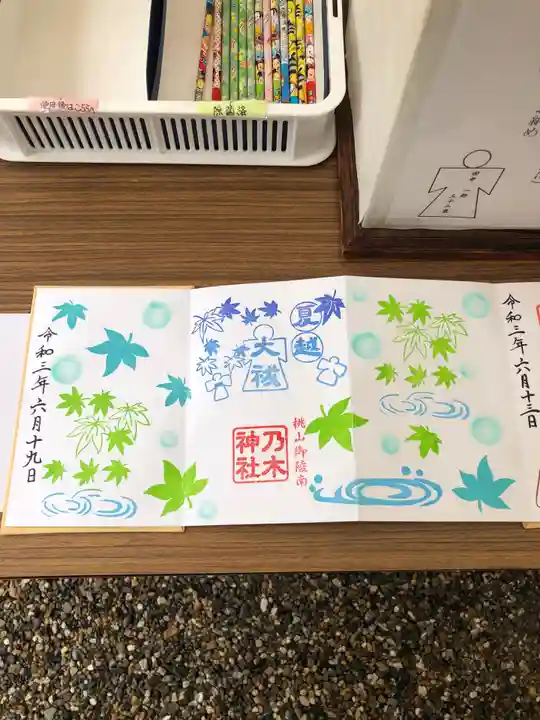 使用後はこちらへ
除菌済
令和三年六月十三日
夏越
大祓
桃山御陵南
乃木神社
令和三年六月十九日